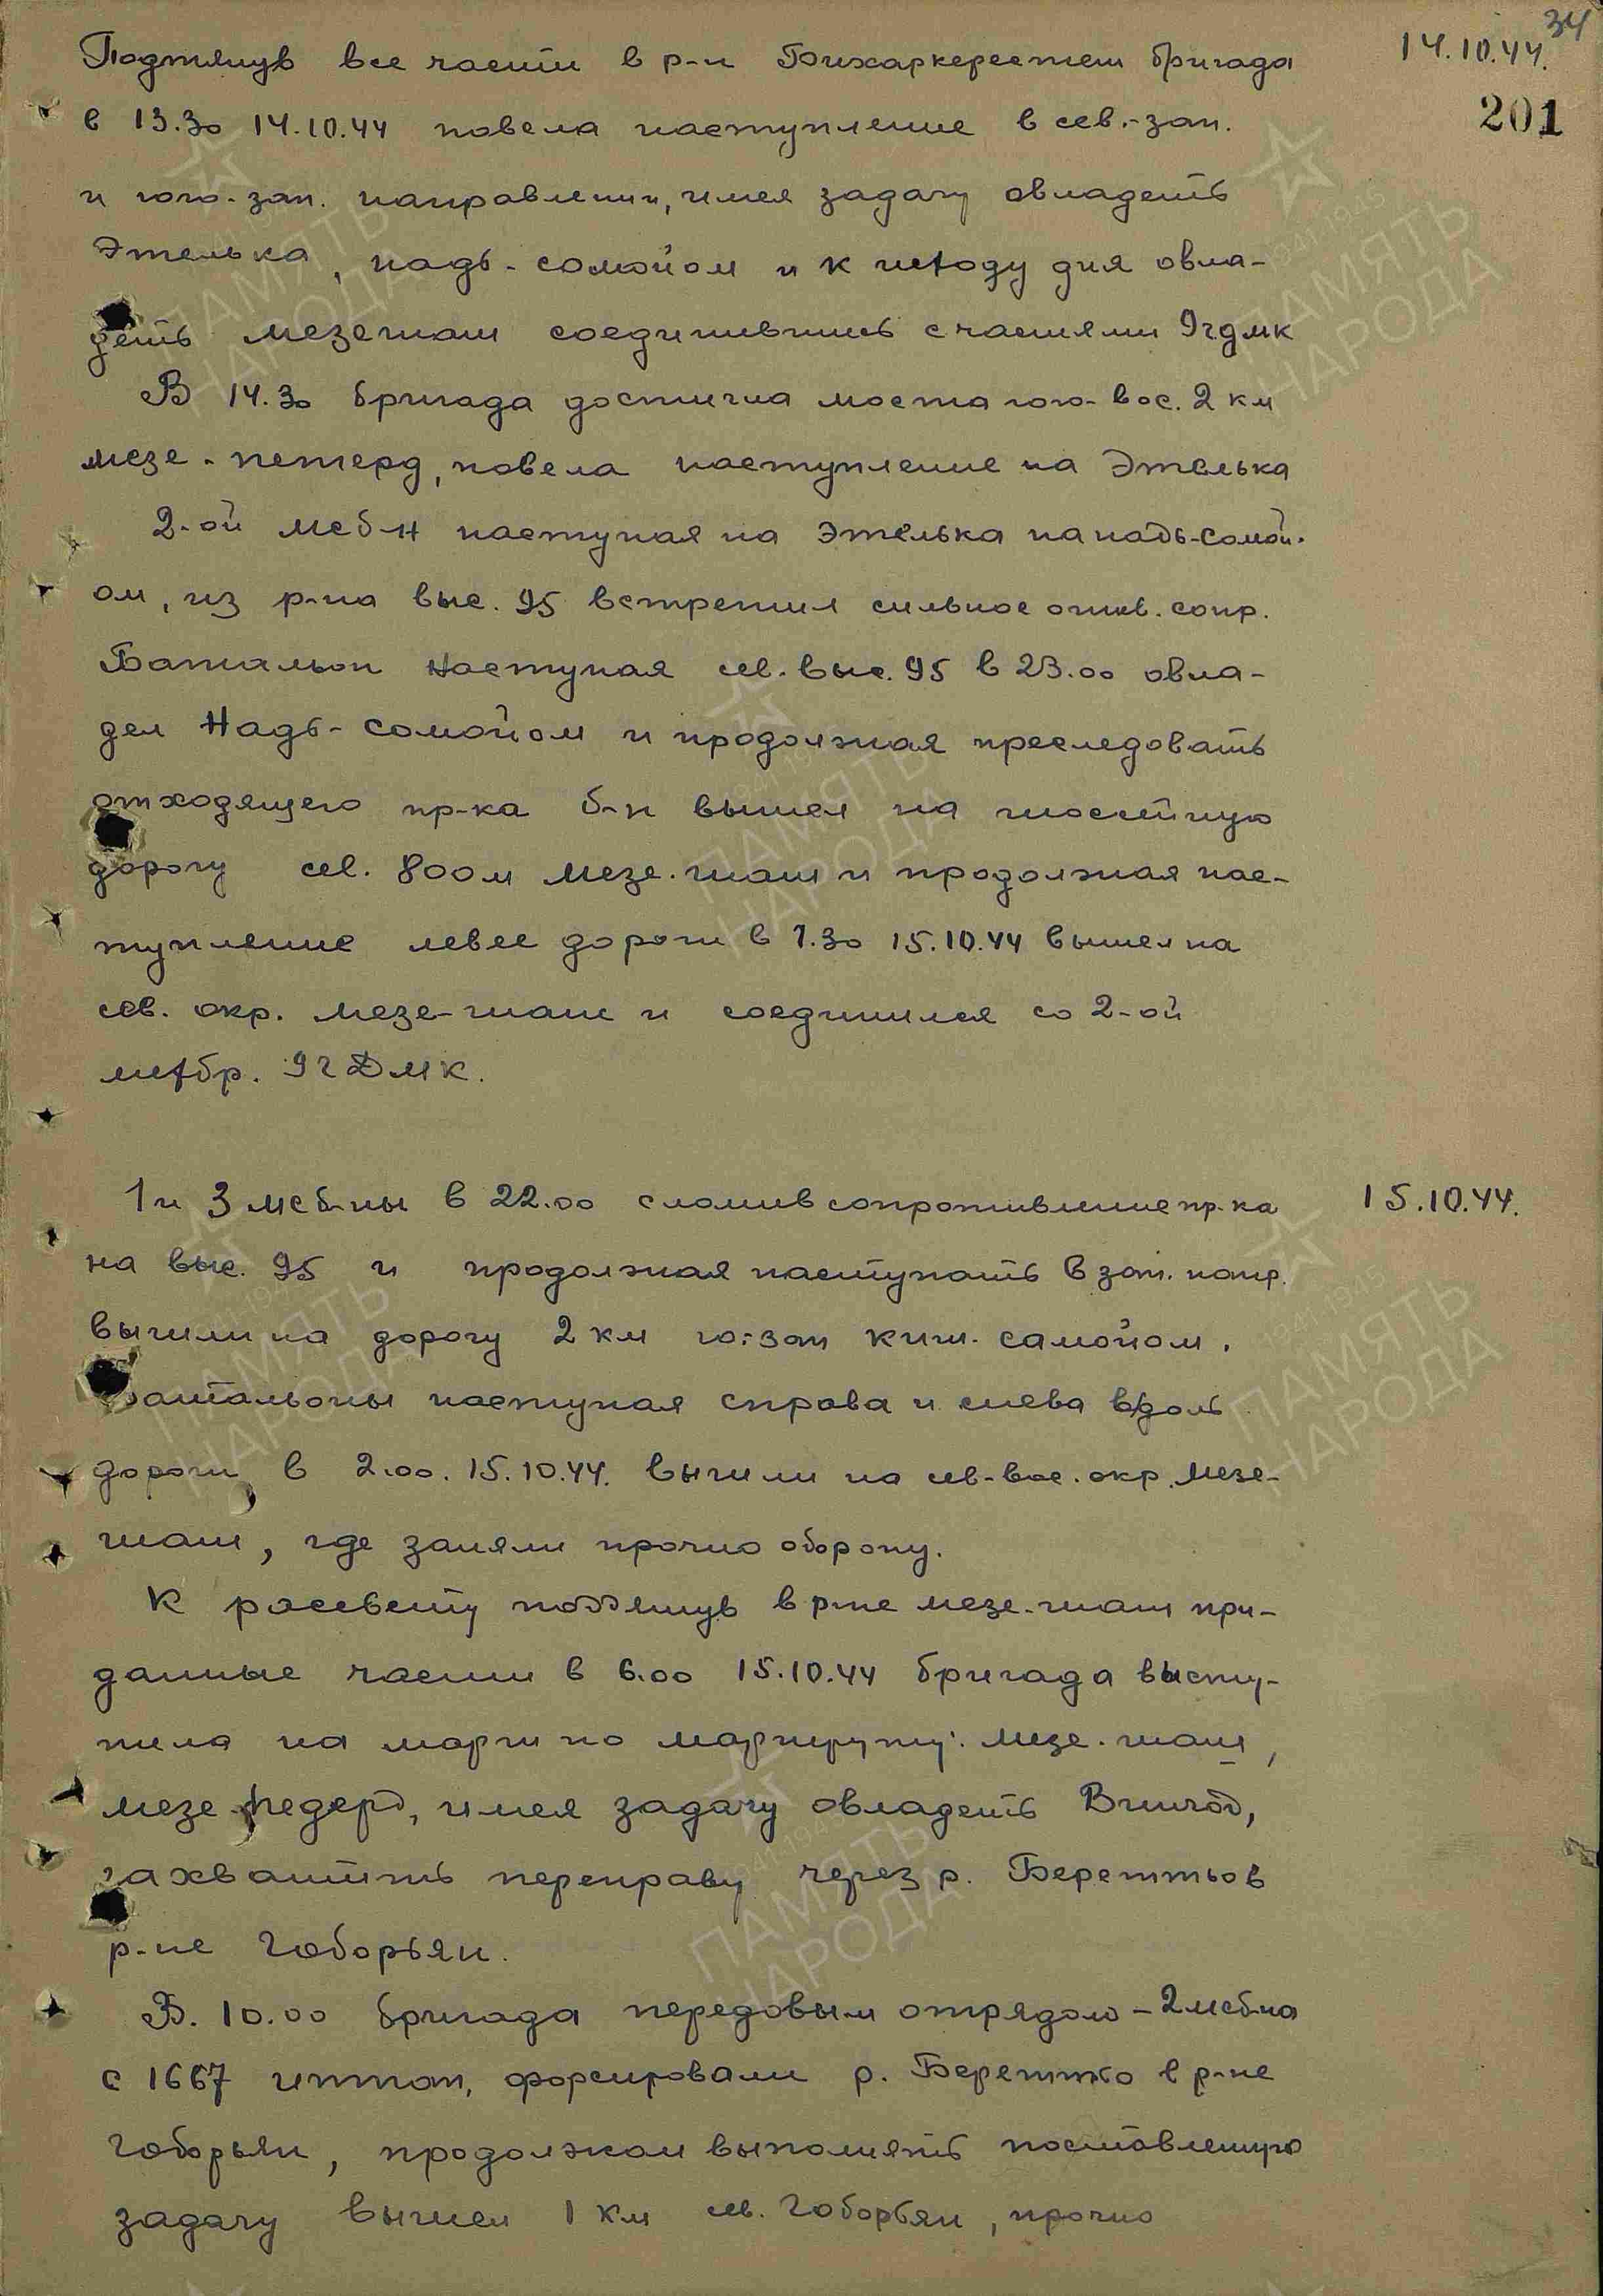 34
14.10.44.
201
Подтянув все части в р-н Бихаркерестеш бригада
в 13.30 14.10.44 повела наступление в сев.-зап.
и юго-зап. направлении, имея задачу овладеть
Этелька, надь-сомойом и к исходу дня овла-
деть мезешаш соединившись с частями 9гдмк
В 14.30 бригада достигла моста юго-вос. 2 км
мезе-петерд, повела наступление на Этелька
2-ой мсб-н наступая на Этелька на надь-сомой-
ом, из р-на выс. 95 встретил сильное огнев. сопр.
Батальон наступая сев. выс. 95 в 23.00 овла-
дел Надь-сомойом и продолжая преследовать
отходящего пр-ка б-н вышел на шоссейную
дорогу сев. 800м мезе-шаш и продолжая нас-
тупление левее дороги в 1.30 15.10.44 вышел на
сев. окр. мезе-шаш и соединился со 2-ой
мехбр. 9гДМК.
15.10.44.
1 и 3 мсб-ны в 22.00 сломив сопротивление пр-ка
на выс. 95 и продолжая наступать в зап. напр.
вышли на дорогу 2 км ю-зап киш-самойом.
Батальоны наступая справа и слева вдоль
дороги, в 2.00. 15.10.44. вышли на сев-вос. окр. мезе-
шаш, где заняли прочно оборону.
К рассвету подтянув в р-не мезе-шаш при-
данные части в 6.00 15.10.44 бригада высту-
пила на марш по маршруту: мезе-шаш,
мезе-педерд, имея задачу овладеть
захватить переправу через р. Береттьо в
р-не Габорьян.
В. 10.00 бригада передовым отрядом - 2мсб-на
с 1667 иптап, форсировали р. Береттьо в р-не
Габорьян, продолжал выполнять поставленную
задачу вышел 1 км сев. Габорьян, прочно
ПАМЯТЬ НАРОДА
1941-1945